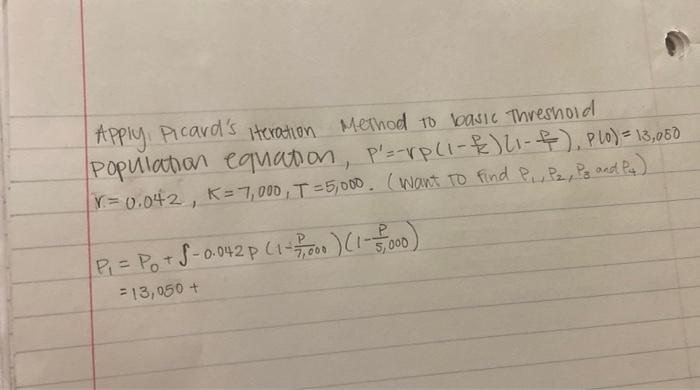 Apply Picard's iteration Method to basic Threshold
population equation, P'=-rp(1-P/K)(1-P/T), P(0)=13,050
r=0.042, K=7,000, T=5,000. (Want to find P₁, P₂, P₃ and P₄)
P₁ = P₀ + ∫-0.042p (1-P/7,000)(1-P/5,000)
=13,050 +